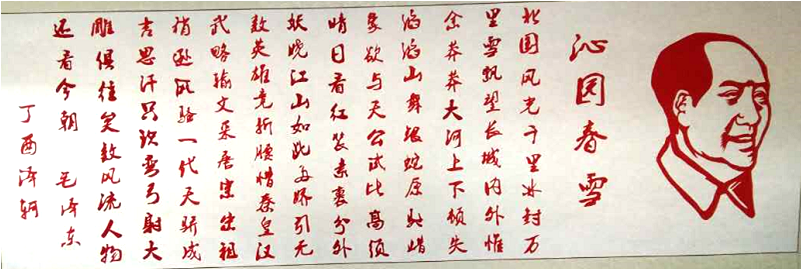 沁园春雪
北国风光千里冰封万
里雪飘望长城内外惟
余莽莽大河上下顿失
滔滔山舞银蛇原驰蜡
象欲与天公试比高须
晴日看红装素裹分外
妖娆江山如此多娇引无
数英雄竞折腰惜秦皇汉
武略输文采唐宗宋祖
稍逊风骚一代天骄成
吉思汗只识弯弓射大
雕俱往矣数风流人物
还看今朝 毛泽东
丁酉泽